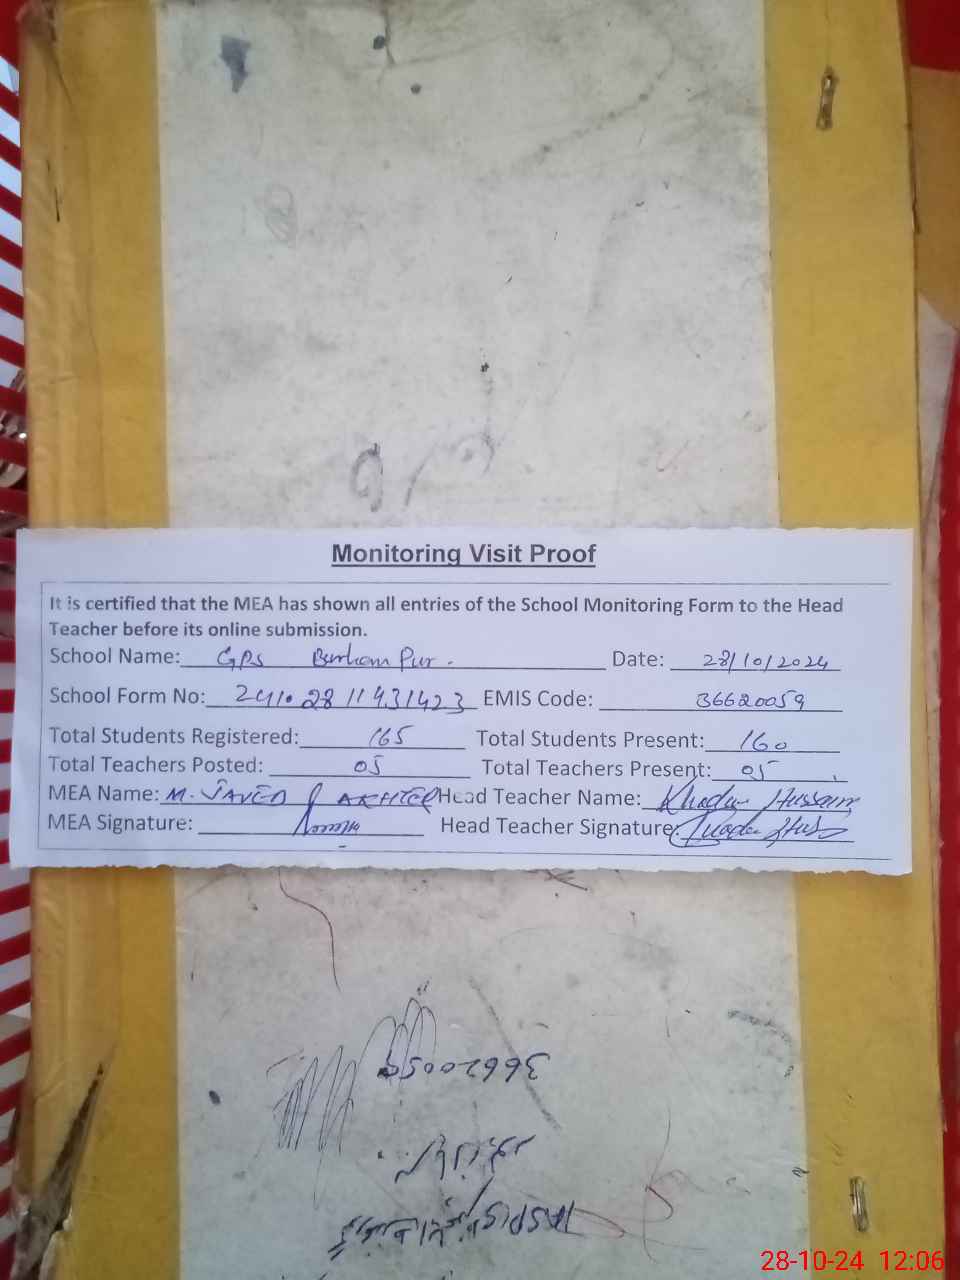 Monitoring Visit Proof
It is certified that the MEA has shown all entries of the School Monitoring Form to the Head
Teacher before its online submission.
School Name: GPS Burham Pur. Date: 28/10/2024
School Form No: 2410281143 1423 EMIS Code: 36620059
Total Students Registered: 165 Total Students Present: 160
Total Teachers Posted: 05 Total Teachers Present: 05
MEA Name: M. JAVED AKHTER Head Teacher Name: Khadim Hussain
MEA Signature: Head Teacher Signature:
36620059
28-10-24 12:06